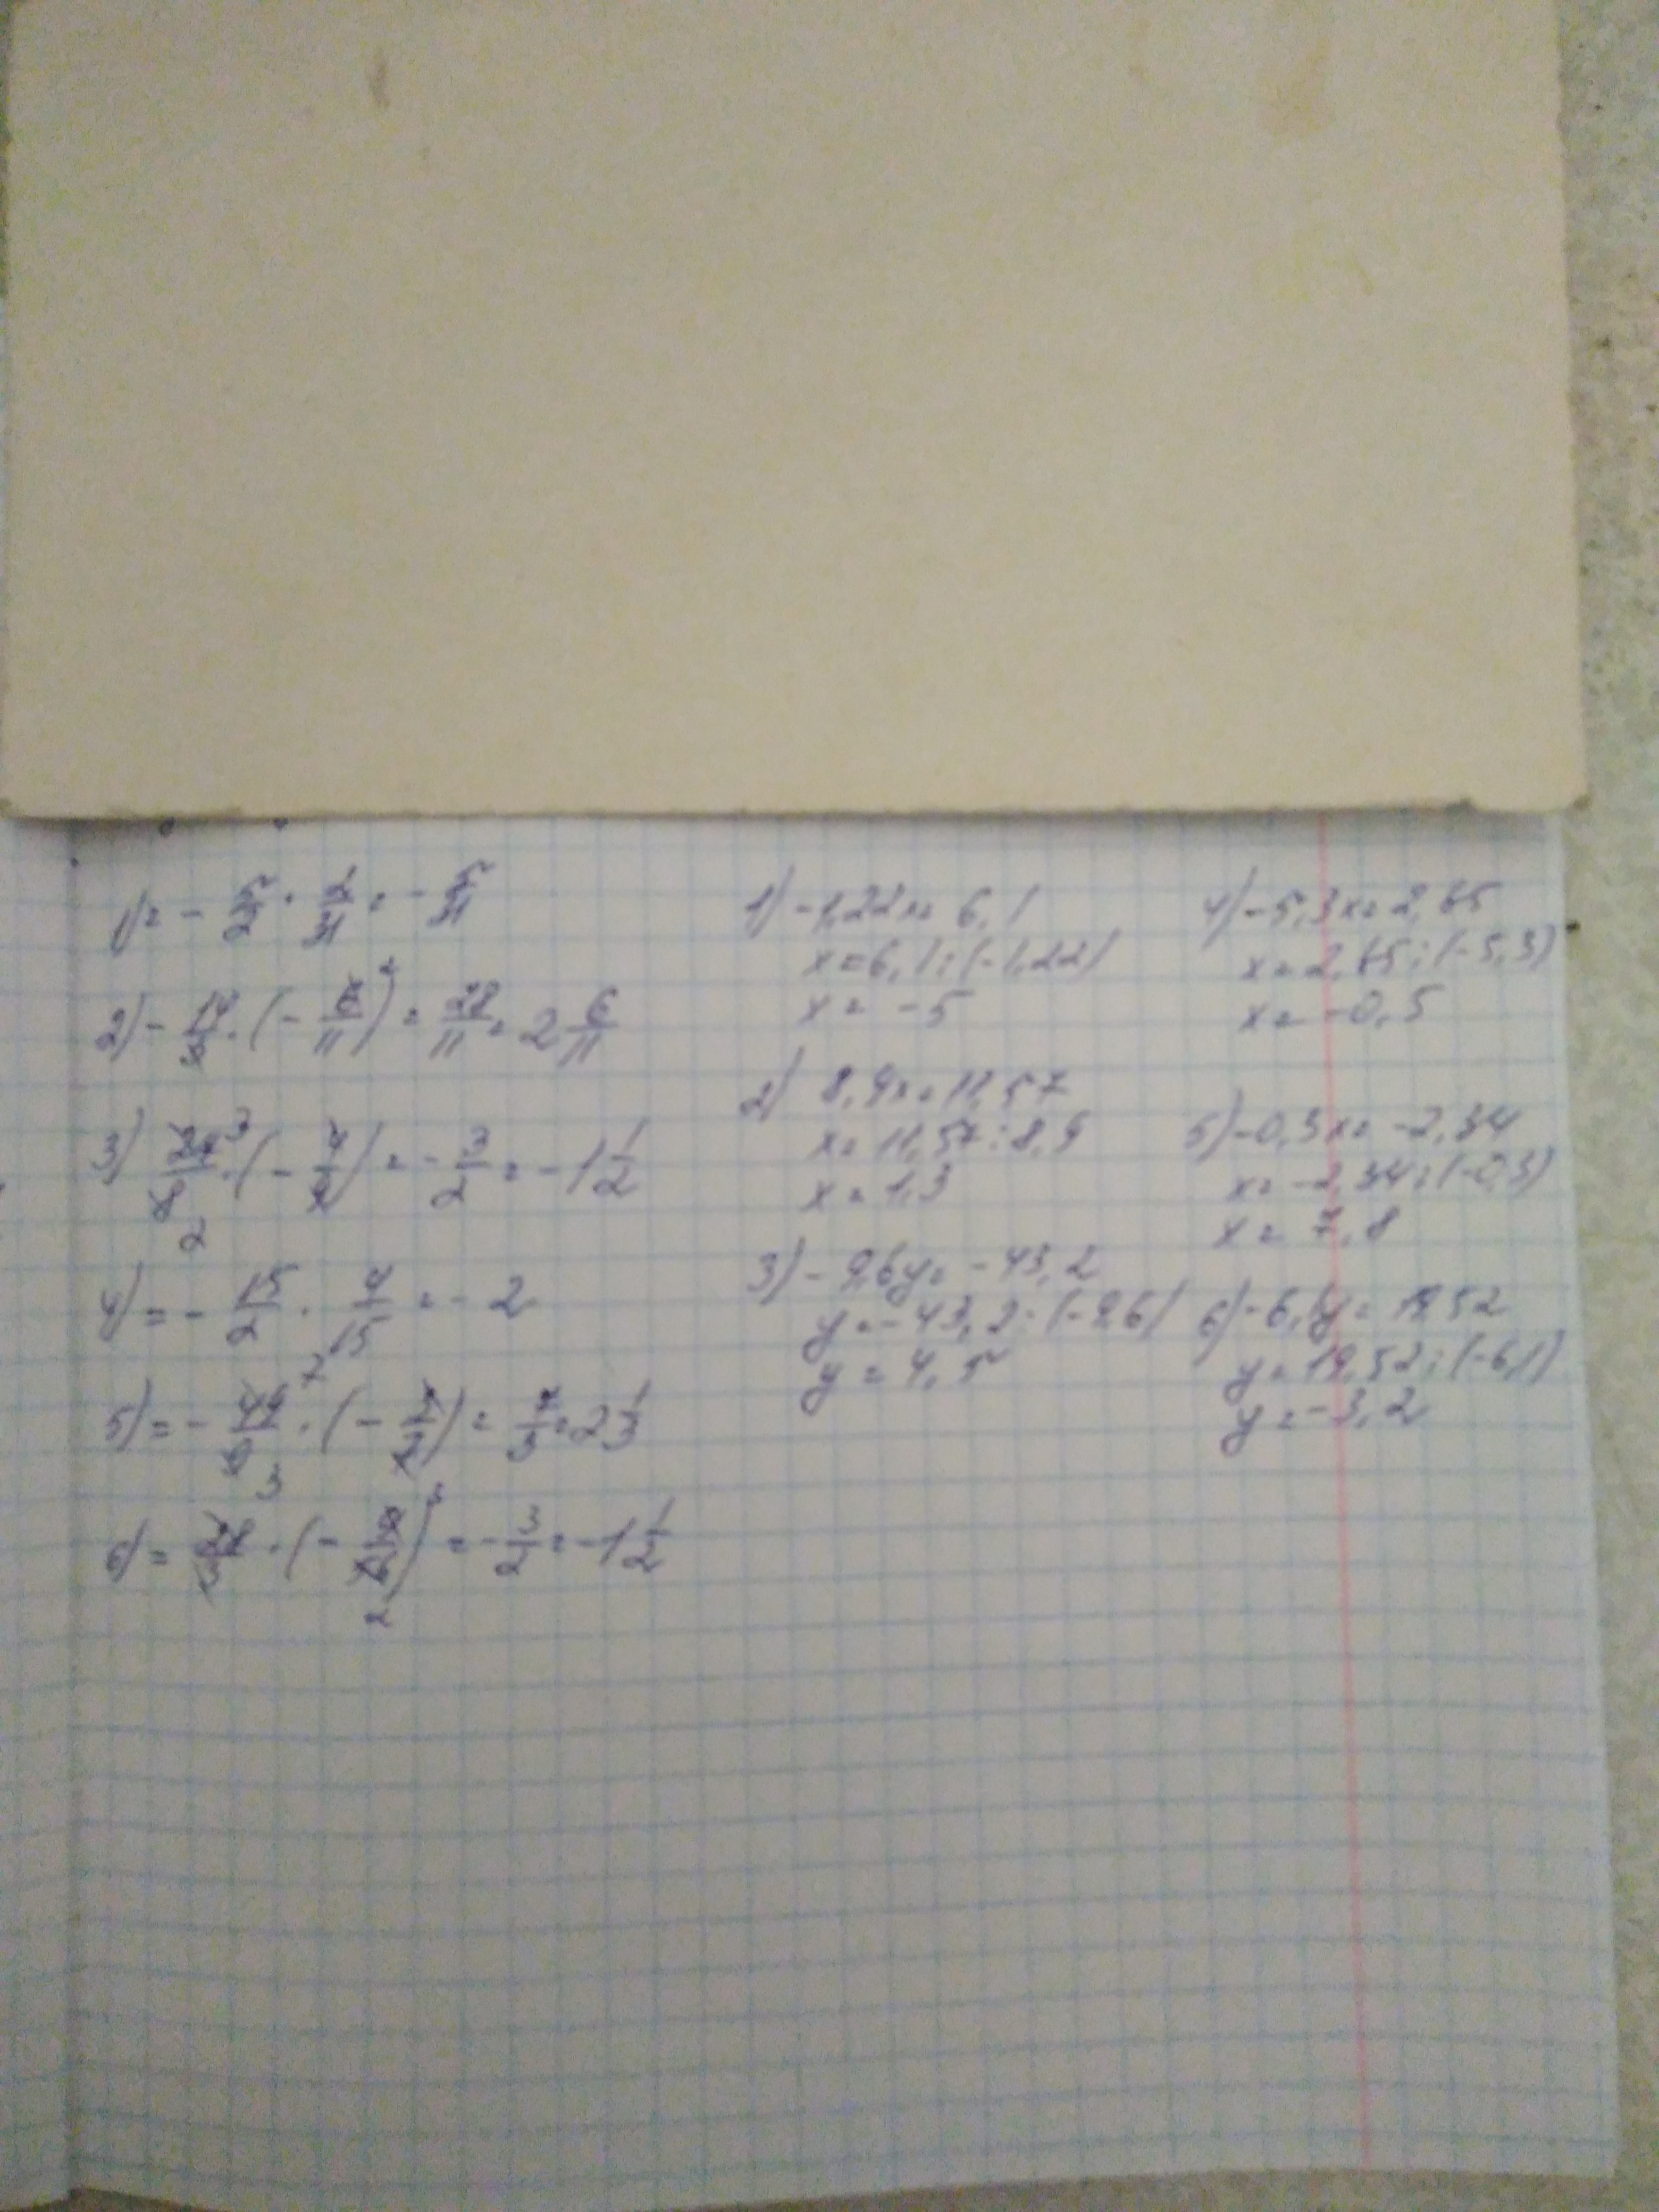 1) = - 5/2 · 2/31 = - 5/31
2) - 14/3 · (- 6/11) 2 = 28/11 = 2 6/11
3) 3 · (- ) = - 3/2 = -1 1/2
8
2
4) = - 15/2 · 4/15 = - 2
5) = - 49/9 · (- ) = 7/3 = 2 1/3
3
6) = · (- ) = - 3/2 = -1 1/2
2
1) -1,22x = 6,1
x = 6,1 : (-1,22)
x = -5
2) 8,9x = 11,57
x = 11,57 : 8,9
x = 1,3
3) - 9,6y = - 43,2
y = - 43,2 : (-9,6)
y = 4,5
4) -5,3x = 2,65
x = 2,65 : (-5,3)
x = -0,5
5) -0,3x = -2,34
x = -2,34 : (-0,3)
x = 7,8
6) -6,1y = 19,52
y = 19,52 : (-6,1)
y = -3,2